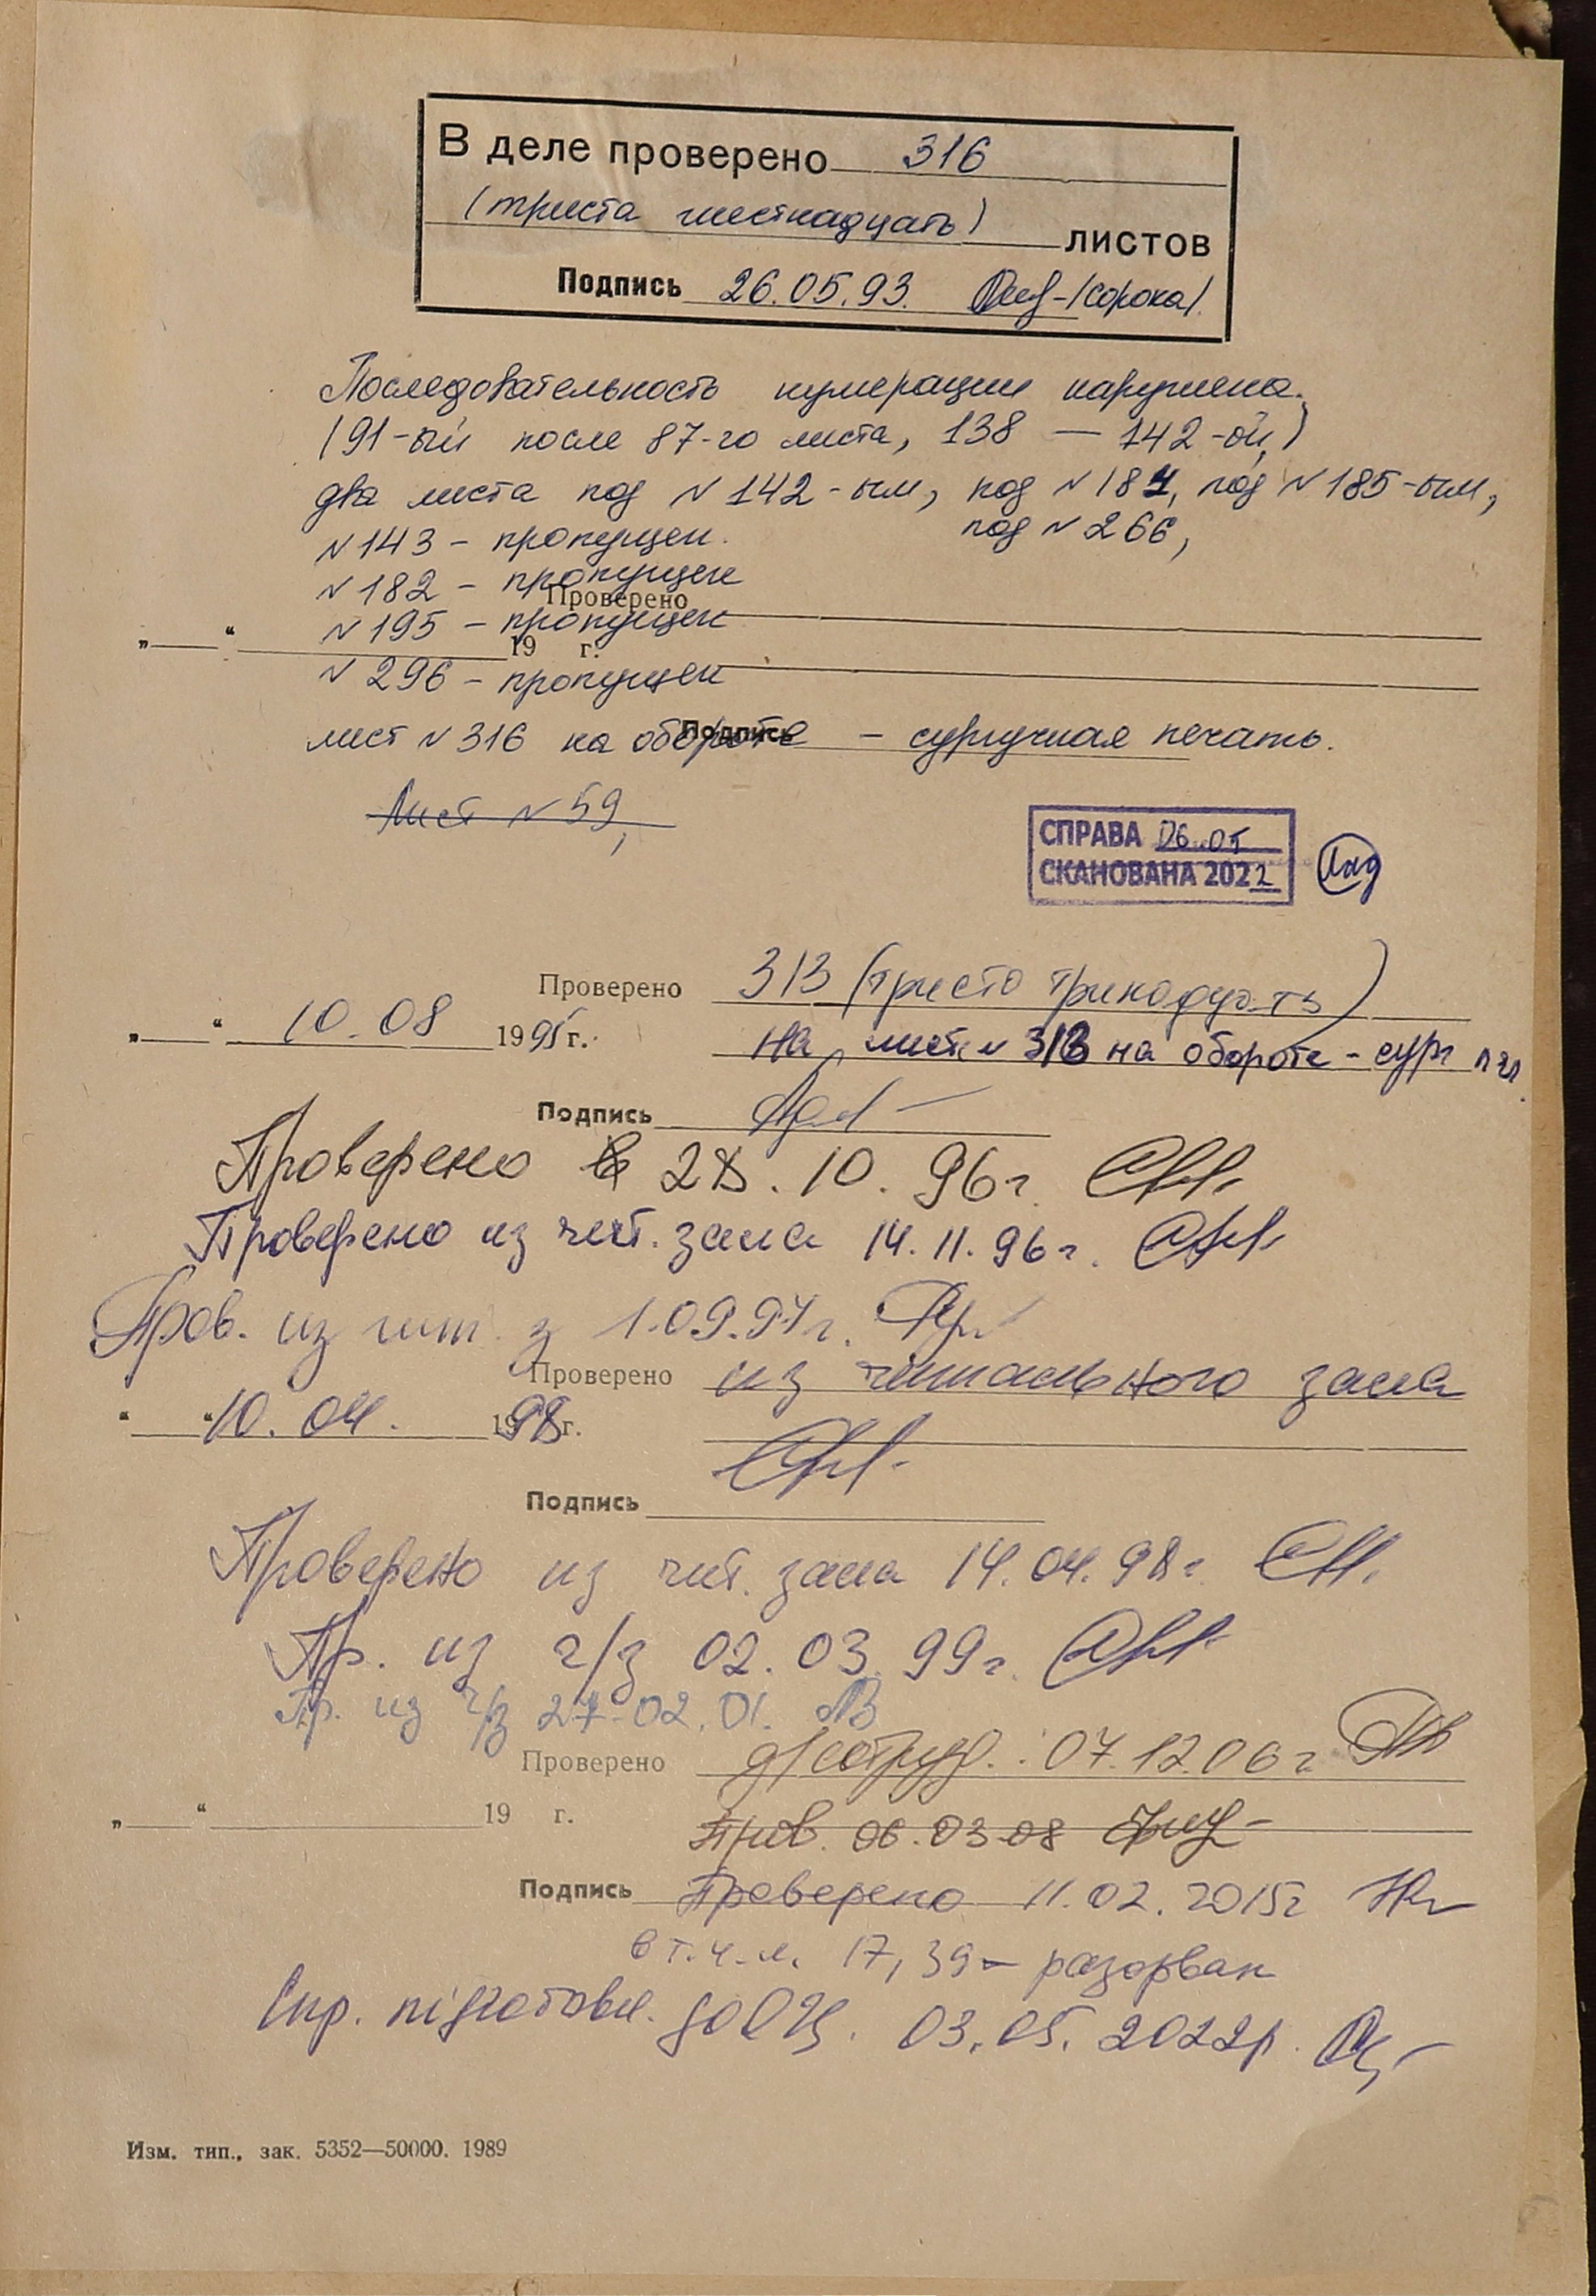 В деле проверено 316
(триста шестнадцать) листов
Подпись 26.05.93. /Сорока/.
Последовательность нумерации нарушена.
(91-ый после 87-го листа, 138 — 142-ой,)
два листа под N 142-ым, под N 181, под N 185-ым,
N 143 - пропущен. под N 266,
N 182 - пропущен
Проверено
N 195 - пропущен
„ “ 19 г.
N 296 - пропущен
Подпись
лист N 316 на обороте - сургучная печать.
Лист N 59,
СПРАВА 06.05
СКАНОВАНА 2022
Проверено 313 (тристо тринадцать)
„ “ 10.08 1995 г.
на листе N 313 на обороте - сург печ.
Подпись
Проверено 28.10.96г.
Проверено из чит. зала 14.11.96г.
Пров. из чит. з 1.09.97г.
Проверено из читального зала
“ “ 10.04. 1998 г.
Подпись
Проверено из чит. зала 14.04.98г.
Пр. из ч/з 02.03.99г.
Пр. из ч/з 27.02.01.
Проверено д/сотруд. 07.12.06г
„ “ 19 г.
Пров. 06.03.08
Подпись Проверено 11.02.2015г
в т.ч. л. 17, 39 - разорван
Спр. підготовл. до ОЦ. 03.05.2022р.
Изм. тип., зак. 5352—50000. 1989